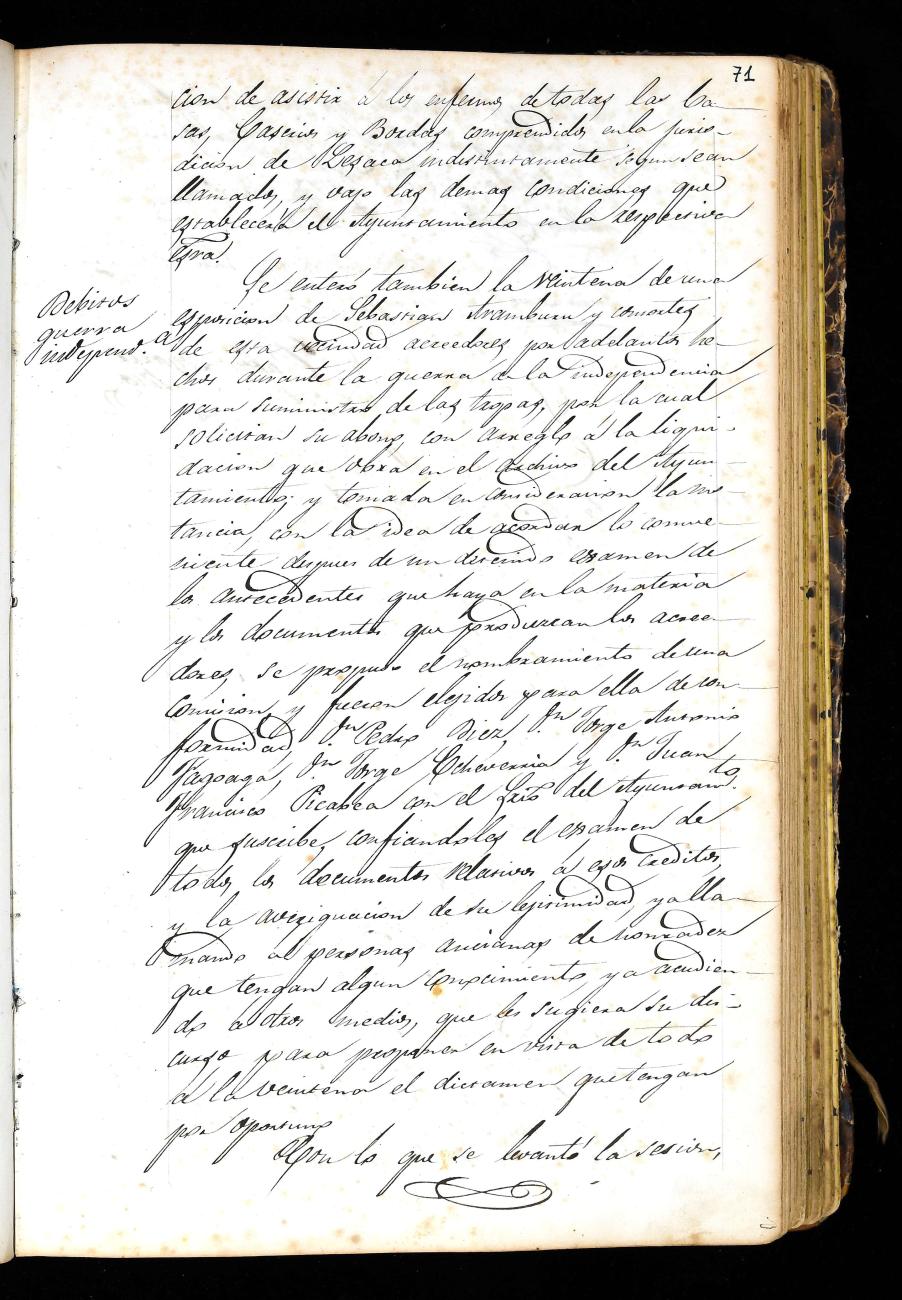 71
cion de asistir á los enfermos de todas las Ca-
sas, Caserios y Bordas comprendidos en la juris-
dicion de Lesaca indistintamente segun sean
llamados, y vajo las demas condiciones que
establecerá el Ayuntamiento en la respectiva
esra.
Se enteró tambien la veintena de una
Debitos
guerra
independ.a
esposicion de Sebastian Aramburu y consortes
de esta vecindad acreedores por adelantos he-
chos durante la guerra de la independencia
para suministro de las tropas, por la cual
solicitan su abono, con arreglo á la liqui-
dacion que obra en el archivo del Ayun-
tamiento; y tomada en consideracion la ins-
tancia, con la idea de acordar lo conve-
niente despues de un detenido examen de
los antecedentes que haya en la materia
y los documentos que produzcan los acree-
dores, se propuso el nombramiento de una
Comision, y fueron elejidos para ella de con-
formidad Dn Pedro Diez, Dn Jorge Antonio
Fagoaga, Dn Jorge Echeverria y Dn Juan
Francisco Picabea con el Srio del Ayuntamto.
que suscribe, confiandoles el examen de
todos los documentos relativos á esos creditos,
y la averiguacion de su lejitimidad, ya lla-
mando a personas ancianas de honradez
que tengan algun conocimiento, y a acudien-
do a otros medios, que les sugiera su dis-
curso para proponer en vista de todo
á la veintena el dictamen que tengan
por oportuno
Con lo que se levantó la sesion,